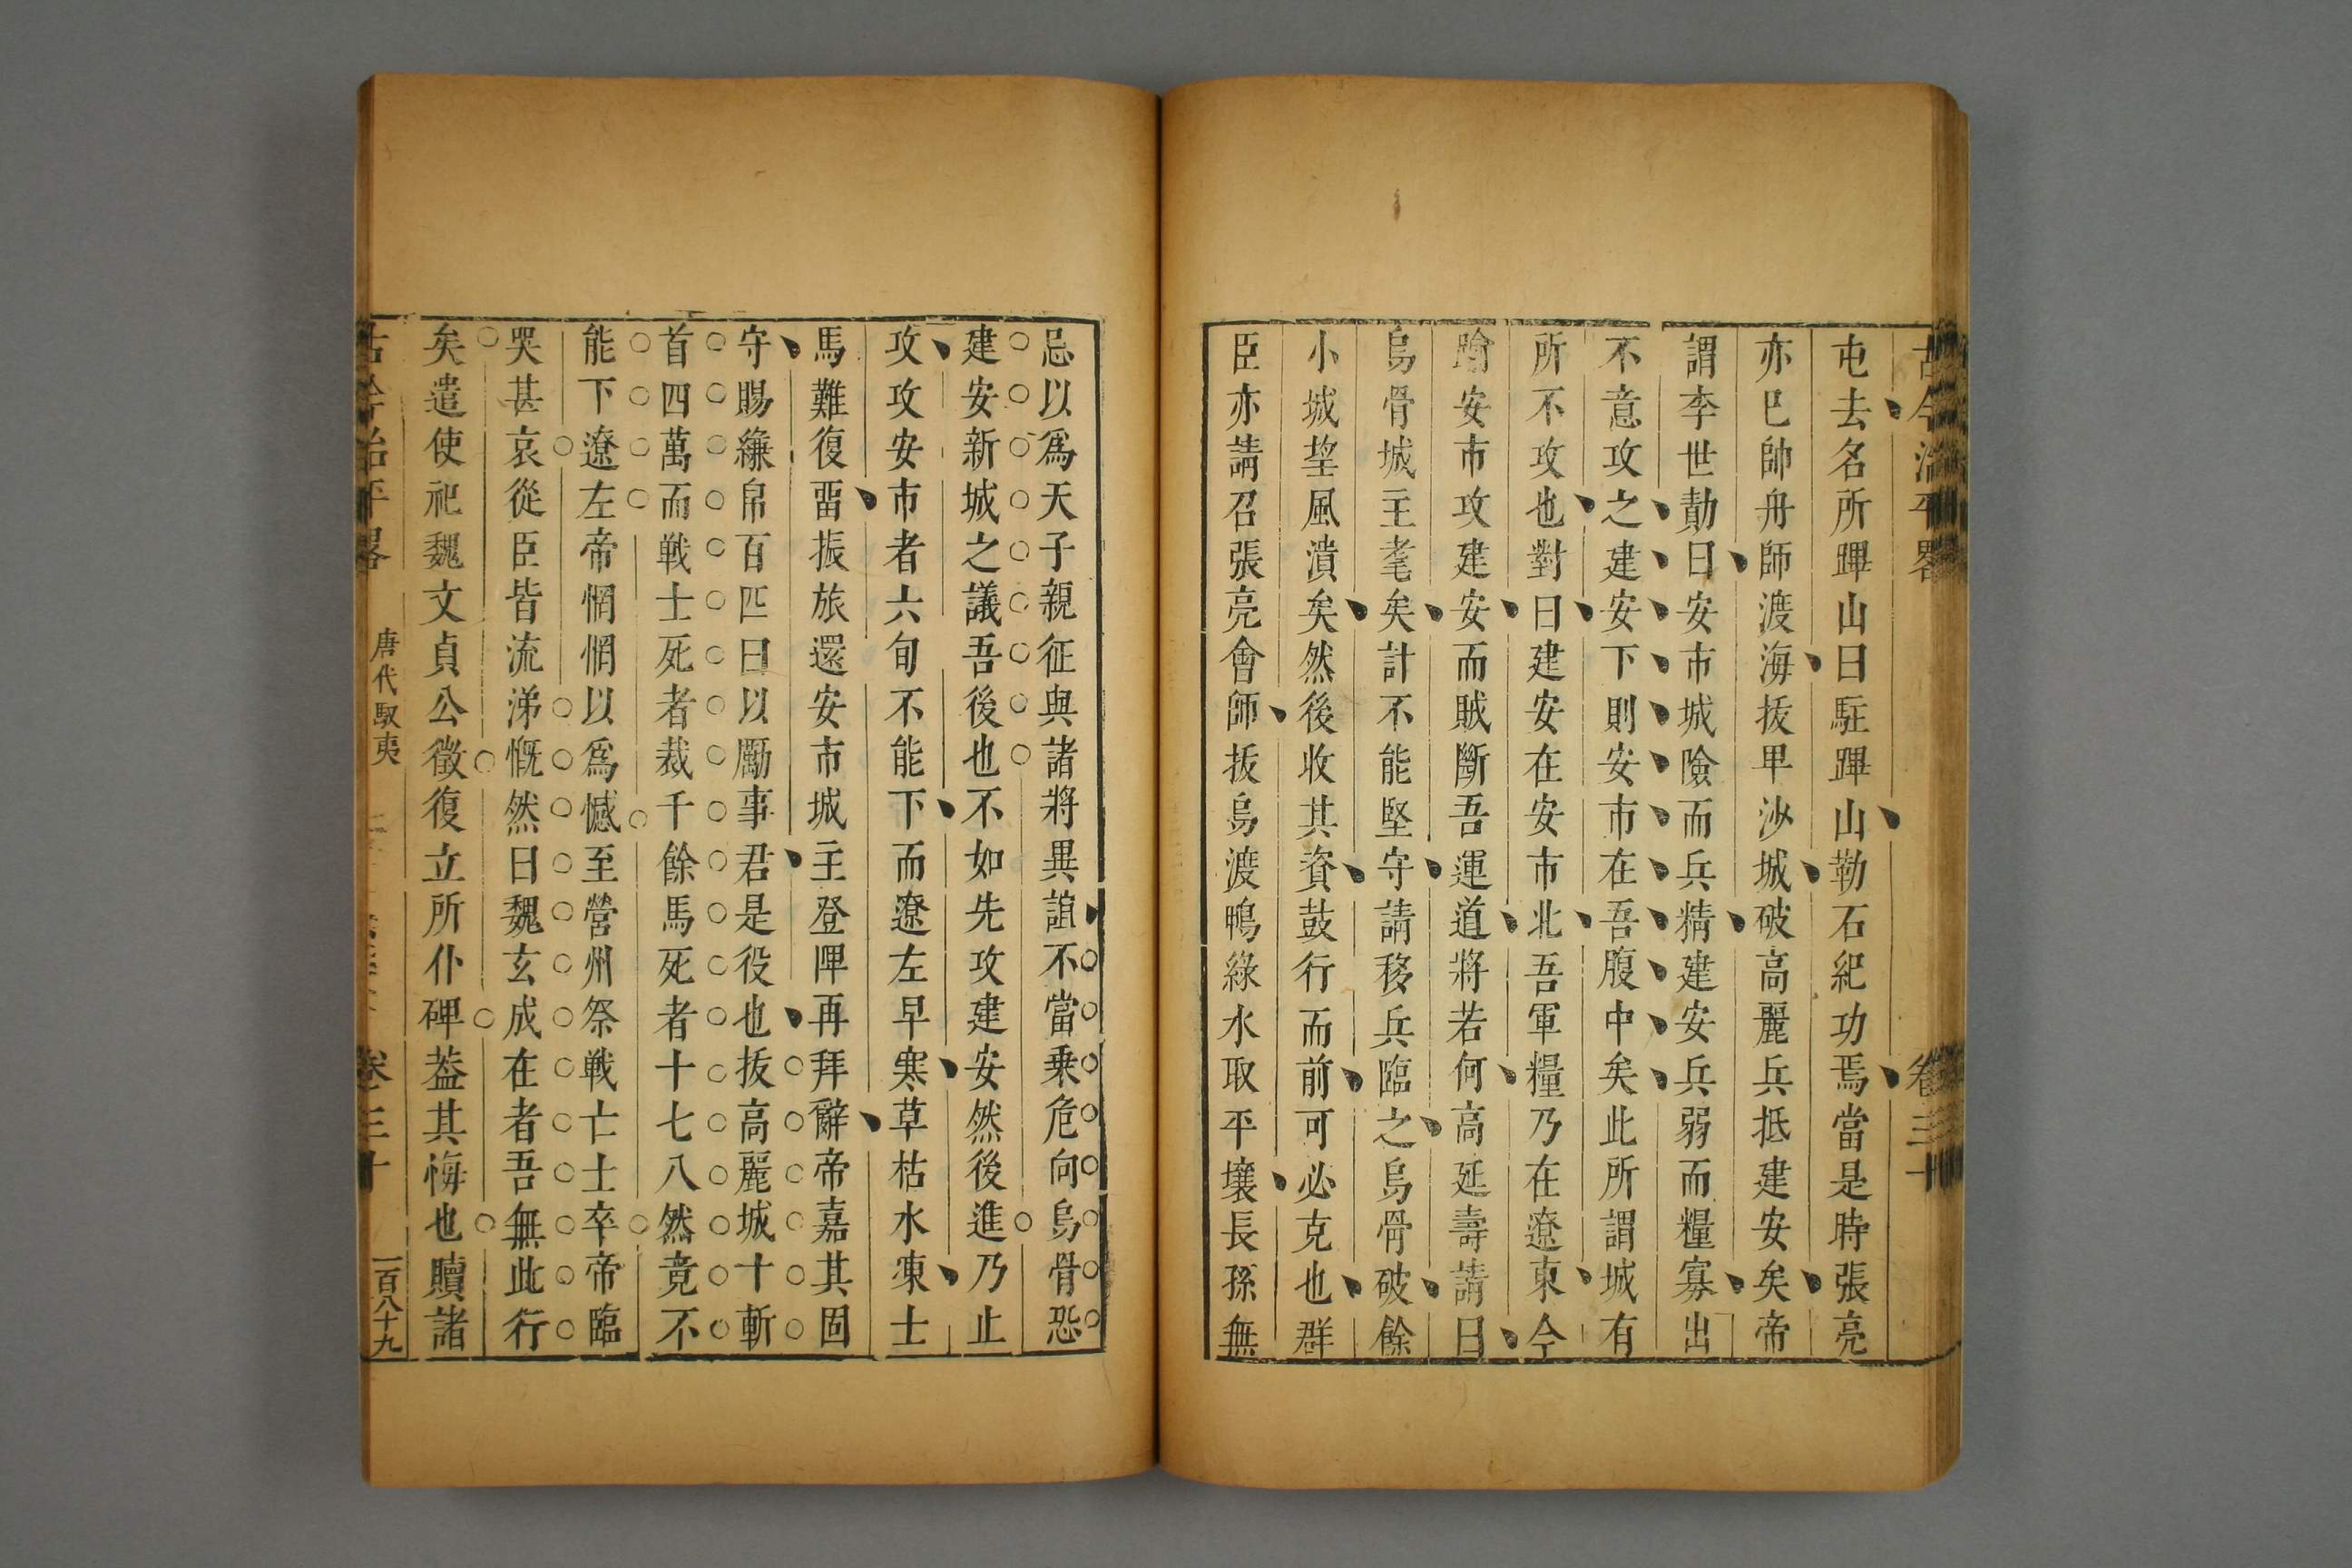 古今治平畧 卷三十
屯去名所蹕山曰駐蹕山勒石紀功焉當是時張亮
亦已帥舟師渡海拔卑沙城破高麗兵抵建安矣帝
謂李世勣曰安市城險而兵精建安兵弱而糧寡出
不意攻之建安下則安市在吾腹中矣此所謂城有
所不攻也對曰建安在安市北吾軍糧乃在遼東今
踰安市攻建安而賊斷吾運道將若何高延壽請曰
烏骨城主耄矣計不能堅守請移兵臨之烏骨破餘
小城望風潰矣然後收其資鼓行而前可必克也群
臣亦請召張亮會師拔烏渡鴨綠水取平壤長孫無
忌以爲天子親征與諸將異誼不當乗危向烏骨恐
建安新城之議吾後也不如先攻建安然後進乃止
攻攻安市者六旬不能下而遼左早寒草枯水凍士
馬難復畱振旅還安市城主登陴再拜辭帝嘉其固
守賜縑帛百匹曰以勵事君是役也拔高麗城十斬
首四萬而戰士死者裁千餘馬死者十七八然竟不
能下遼左帝惘惘以爲憾至營州祭戰亡士卒帝臨
哭甚哀從臣皆流涕慨然曰魏玄成在者吾無此行
矣遣使祀魏文貞公徵復立所仆碑葢其悔也贖諸
古今治平畧 唐代馭夷 卷三十 一百八十九